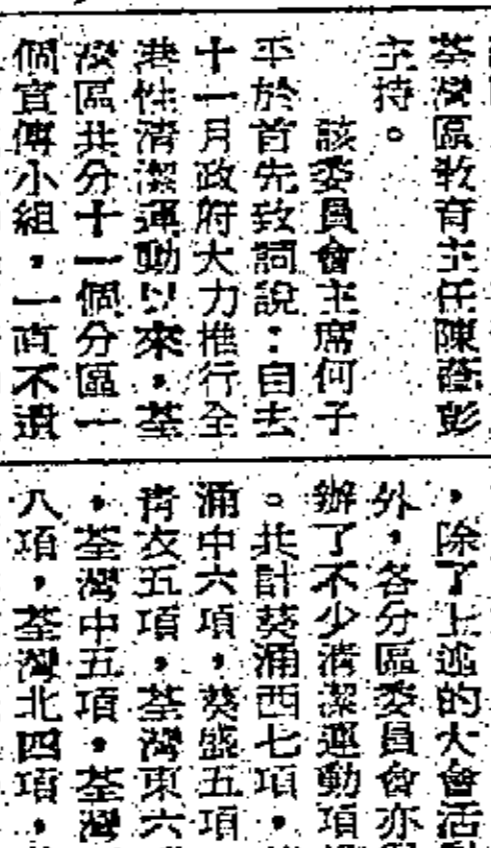 荃灣區敎育主任陳彭
主持。
該委員會主席何子
平於首先致詞說：自去
十一月政府大力推行全
港性清潔運動以來，荃
灣區共分十一個分區一
個宣傳小組，一直不遺
，除了上述的大會活
外，各分區委員會亦
辦了不少清潔運動項
。共計葵涌西七項，
涌中六項，葵盛五項
青衣五項，荃灣東六
，荃灣中五項，荃灣
八項，荃灣北四項，